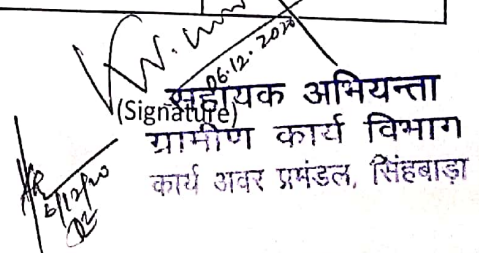 06.12.2020
(Signature)
सहायक अभियन्ता
ग्रामीण कार्य विभाग
कार्य अवर प्रमंडल, सिंहबाड़ा
6/12/20